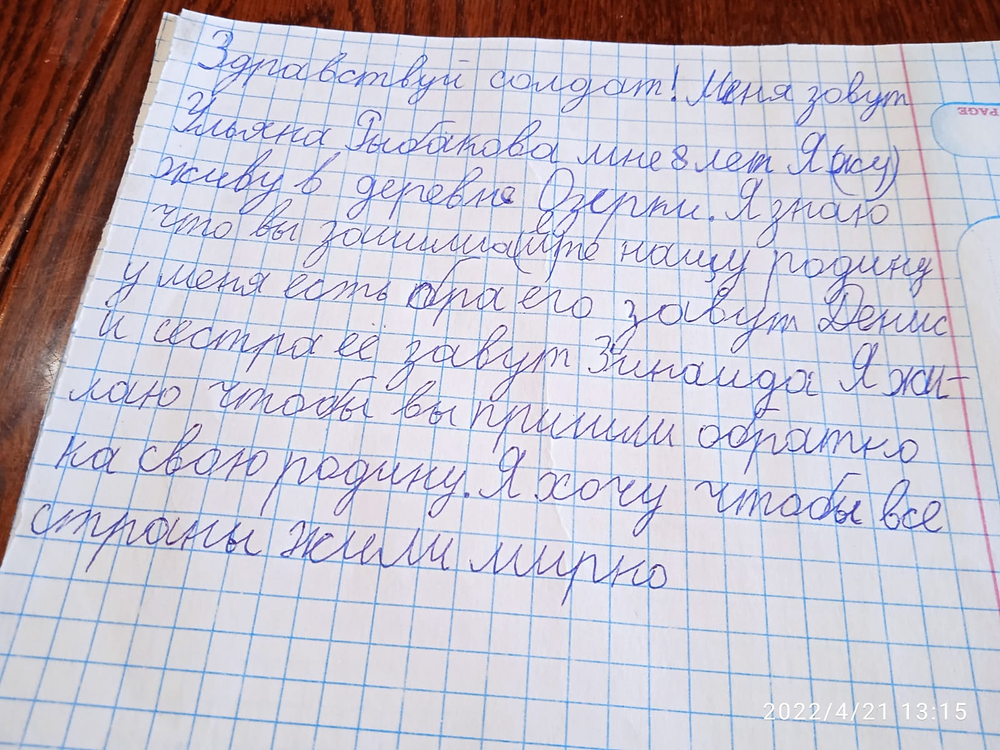 Здравствуй солдат! Меня зовут
Ульяна Рыбакова мне 8 лет Я (жу)
живу в деревне Озерки. Я знаю
что вы защища(и)те нашу родину
у меня есть бра его завут Денис
и сестра её завут Зинаида Я жи-
лаю чтобы вы пришли обратно
на свою родину. Я хочу чтобы все
страны жили мирно
PAGE
2022/4/21 13:15